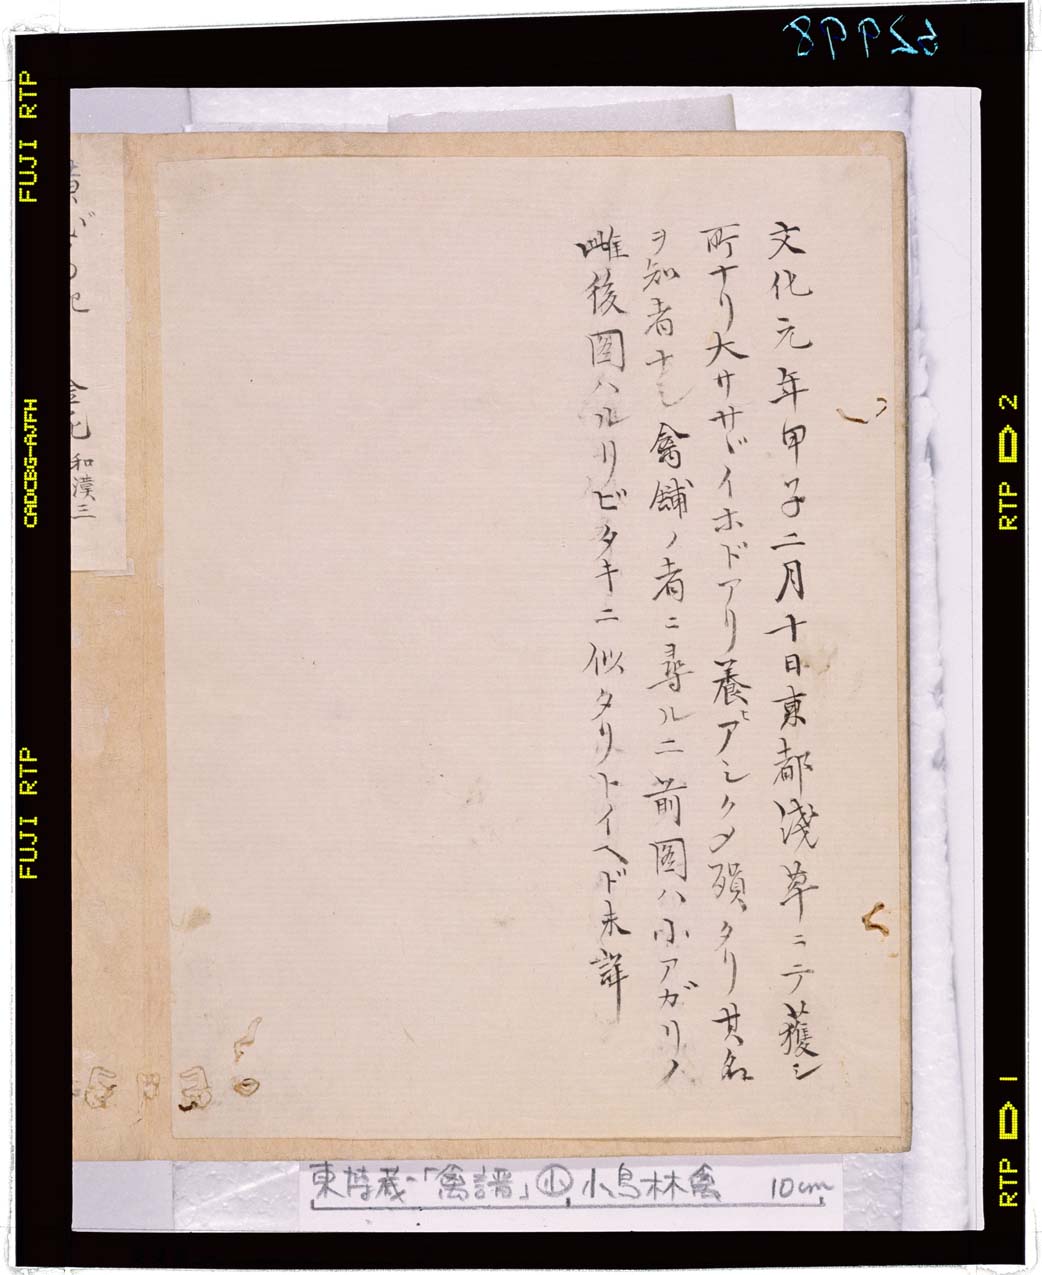 文化元年甲子二月十日東都淺草ニテ獲シ
所ナリ大ササヾイホドアリ養ヒアシクメ殞タリ其名
ヲ知者ナシ禽舗ノ者ニ尋ルニ前圖ハ小アガリノ
雌後圖ハルリビタキニ似タリトイヘド未詳
和漢三
東博蔵-「禽譜」小 小鳥林禽 10cm
52998
FUJI RTP
CADCBG-AJFH
FUJI RTP
RTP D 2
RTP D 1